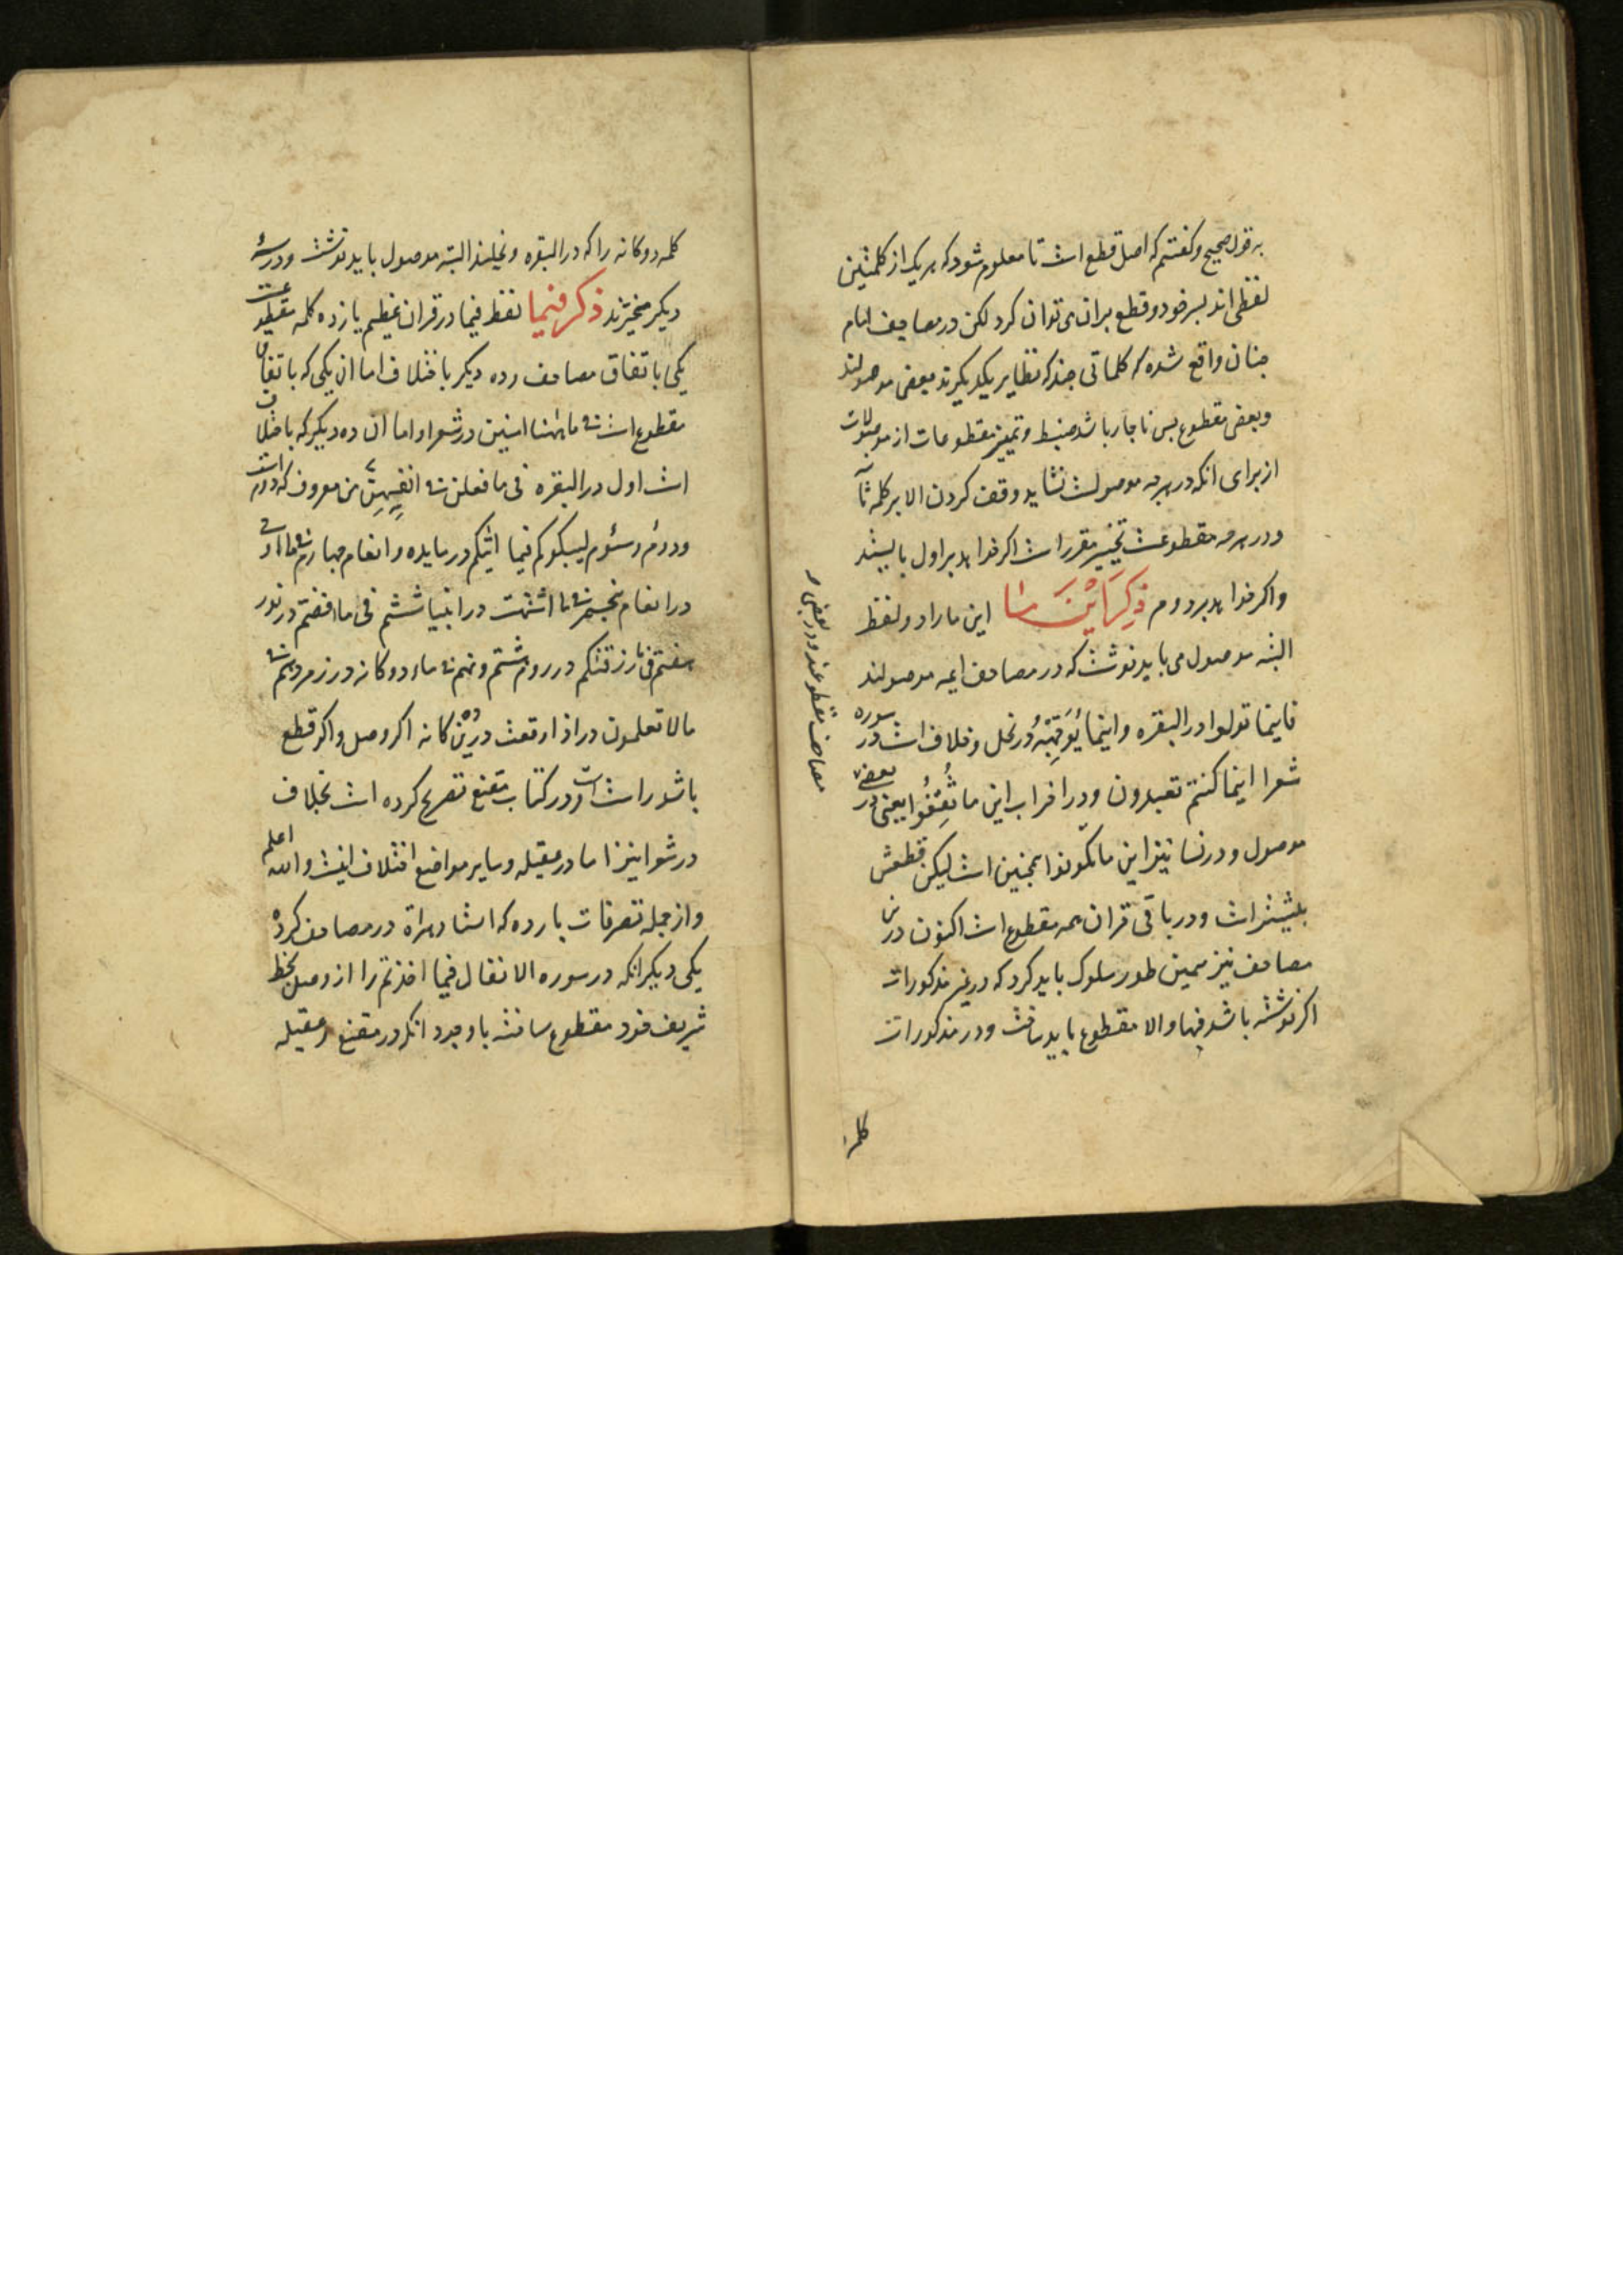 به قول صحیح و کفتیم که اصل قطع است تا معلوم شود که هر یک از کلمتین
لفظی اند بسر خود و قطع بران می توان کرد لکن در مصاحف امام
چنان واقع شده که کلماتی چند که نظایر یکدیکرند بعضی موصولند
و بعضی مقطوع بس ناچار باشد ضبط و تمییز مقطوعات از موصولات
از برای انکه در هرچه موصولست نشاید وقف کردن الا بر کلمه ثانی
و در هرچه مقطوعست تخییر مقرر است اکر خواهد بر اول بایستد
و اکر خواهد بر دوم ذِکر اَیْنَ مَا این ما را دو لفظ
البته موصول می باید نوشت که در مصاحف ایمه موصولند
فاینما تولوا در البقره و اینما یُوَجِّهْهُ در نحل و خلاف است در سوره
شعرا اینما کنتم تعبدون و در احزاب این ما ثُقِفُوا یعنی در بعضی
مصاحف مقطوعند و در بعضی
موصول و در نسا نیز این ما تکونوا همچنین است لیکن قطعش
بیشتر است و در باقی قران همه مقطوع است اکنون درین
مصاحف نیز همین طور سلوک باید کرد که در غیر مذکورات
اکر نوشته باشد فبها والا مقطوع باید ساخت و در مذکورات
کلمه
کلمه دوکانه را که در البقره و نحلند البته موصول باید نوشت و در سهٔ
دیکر مخیرند ذکر فیما لفظ فیما در قران عظیم یازده کلمه مقطوعست
یکی باتفاق مصاحف و ده دیکر باختلاف اما ان یکی که باتفاق
مقطوع است فی ما ههنا امنین در شعرا و اما ان ده دیکر که باختلاف
است اول در البقره فی ما فعلن فی انفسهن من معروف که دوم است
و دوم و سوم لیبلوکم فیما اتیکم در مایده و انعام چهارم فی ما اوحی
در انعام پنجم فی ما اشتهت در انبیا ششم فی ما افضتم در نور
هفتم فی ما رزقنکم در روم هشتم و نهم فی ما دوکانه در زمر دهم فی
مالا تعلمون در اذا وقعت درین ده کانه اکر وصل و اکر قطع
باشد راست است و در کتاب مقنع تصریح کرده است بخلاف
در شعرا نیز اما در عقیله و سایر مواضع اختلاف نیست والله اعلم
و از جمله تصرفات بارده که استاد هراة در مصاحف کرده
یکی دیکر انکه در سوره الانفال فیما اخذتم را از وصل بخط
شریف خود مقطوع ساخته با وجود انکه در مقنع و عقیله